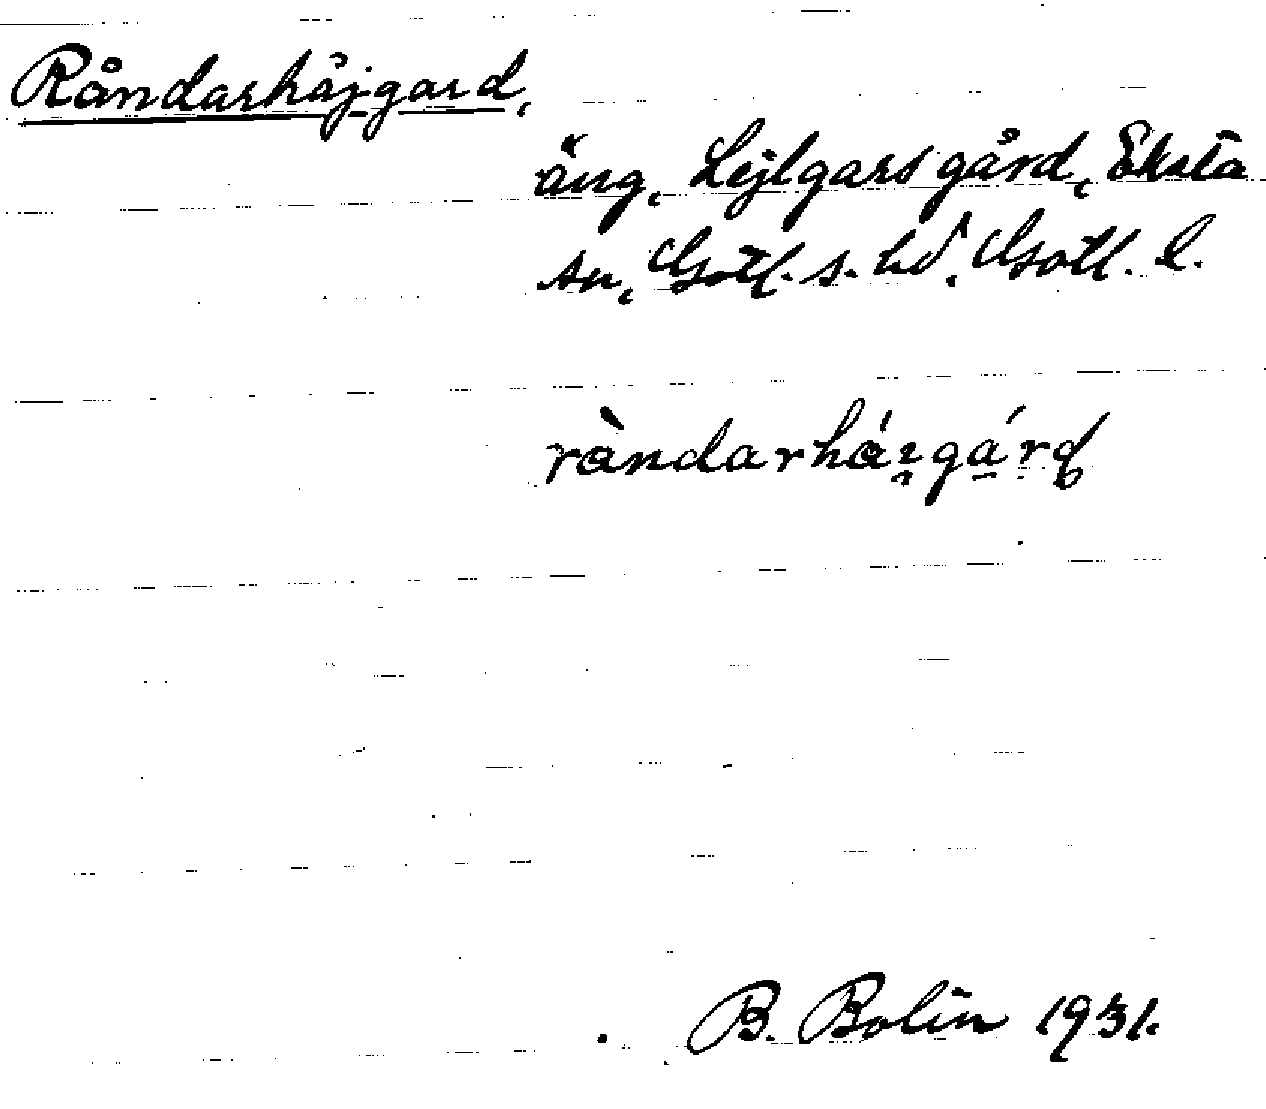 Råndarhåjgard,
äng, Lejlgarsgård, Eksta
sn, Gotl. s. hd. Gotl. l.
ràndarháı̯gá̱rd
B. Bolin 1931.